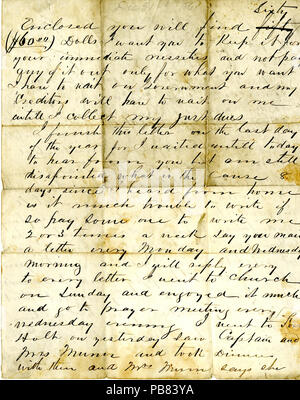 Sixty
Enclosed you will find fifty
($60.00) Dolls I want you to keep it for
your immediate nessities and not pay
any of it out only for what you want
I have to wait on Government and my
Creditors will have to wait on me
untill I collect my just dues
I finish this letter on the last day
of the year for I waited untill today
to hear from you but am still
disapointed what is the Cause 8
days since I heard from home
is it much trouble to write if
so pay some one to write me
2 or 3 times a week say you mail
a letter every Monday and Wednesday
morning and I will reply
to every letter I went to church
on Sunday and enjoyed it much
and go to prayer meeting every
wednesday evening I went to
Holt on yesterday saw Captain and
Mrs Munn and took Dinner
with them and Mrs Munn says she
alamy
Image ID: PB83YA
www.alamy.com